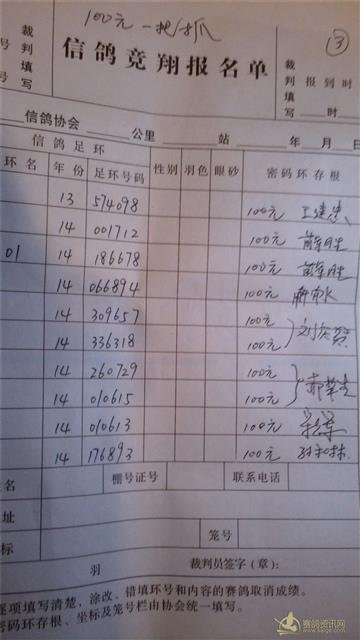 100元一把抓
③
裁判填写
信鸽竞翔报名单
裁判填写
报到时
时
信鸽协会 公里 站 年 月 日
信鸽足环
环名 年份 足环号码 性别 羽色 眼砂 密码环存根
13 574098 100元
14 001712 100元
01 14 186678 100元
14 066894 100元
14 309657 100元
14 336318 100元
14 260729 100元
14 010615 100元
14 010613 100元
14 176893 100元
姓名 棚号证号 联系电话
址
标 笼号
羽 裁判员签字(章):
逐项填写清楚,涂改、错填环号和内容的赛鸽取消成绩。
密码环存根、坐标及笼号栏由协会统一填写。
赛鸽资讯网
www.saige.com